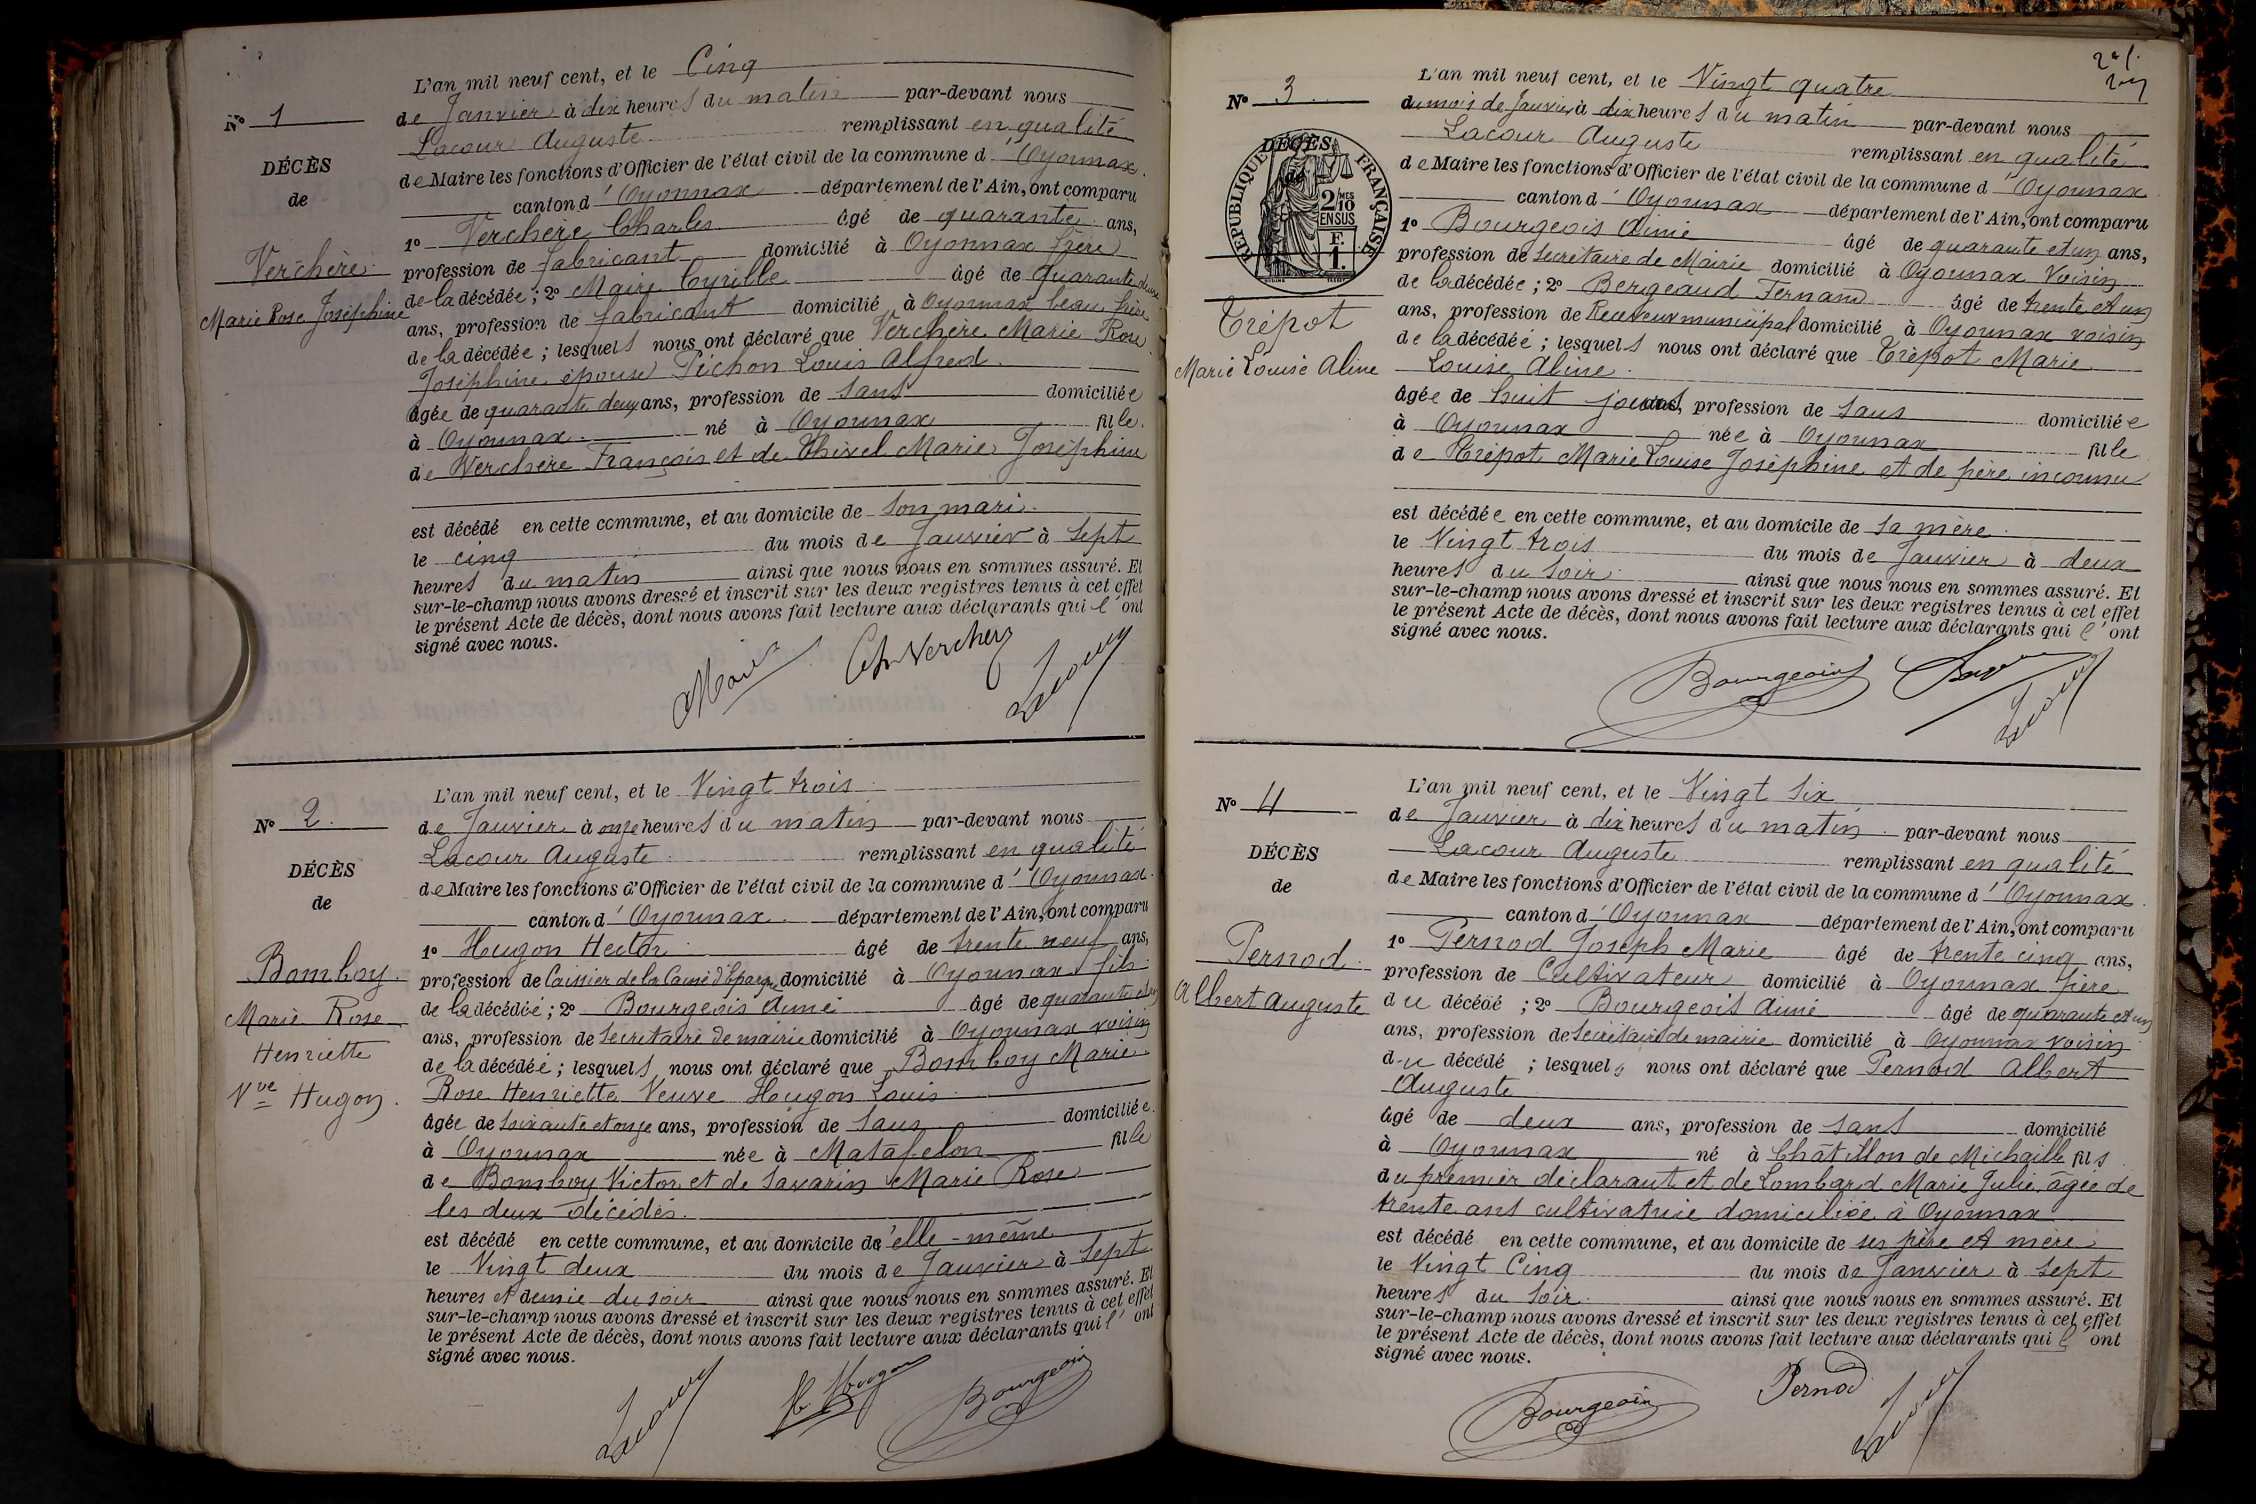 L'an mil neuf cent, et le Cinq
N° 1
de Janvier à dix heures du matin par-devant nous
Lacour Auguste remplissant en qualité
DÉCÈS
de Maire les fonctions d'Officier de l'état civil de la commune d'Oyonnax
de
canton d'Oyonnax département de l'Ain, ont comparu
1° Verchère Charles âgé de quarante ans,
Verchère
profession de fabricant domicilié à Oyonnax frère
Marie Rose Joséphine
de la décédée ; 2° Maire Cyrille âgé de quarante deux
ans, profession de fabricant domicilié à Oyonnax beau frère
de la décédée ; lesquels nous ont déclaré que Verchère Marie Rose
Joséphine épouse Pichon Louis Alfred
âgée de quarante deux ans, profession de sans domiciliée
à Oyonnax né à Oyonnax fille
de Verchère François et de Thivel Marie Joséphine
est décédé en cette commune, et au domicile de son mari
le cinq du mois de Janvier à sept
heures du matin ainsi que nous nous en sommes assuré. Et
sur-le-champ nous avons dressé et inscrit sur les deux registres tenus à cet effet
le présent Acte de décès, dont nous avons fait lecture aux déclarants qui l'ont
signé avec nous.
Maire Ch Verchère Lacour
L'an mil neuf cent, et le Vingt trois
N° 2
de Janvier à onze heures du matin par-devant nous
Lacour Auguste remplissant en qualité
DÉCÈS
de Maire les fonctions d'Officier de l'état civil de la commune d'Oyonnax
de
canton d'Oyonnax département de l'Ain, ont comparu
1° Hugon Hector âgé de trente neuf ans,
Bomboy
profession de Caissier de la Caisse d'Epargne domicilié à Oyonnax fils
de la décédée ; 2° Bourgeois Aimé âgé de quarante et un
Marie Rose
ans, profession de Secrétaire de mairie domicilié à Oyonnax voisin
Henriette
de la décédée ; lesquels nous ont déclaré que Bomboy Marie
Vve Hugon
Rose Henriette Veuve Hugon Louis
âgée de soixante et onze ans, profession de sans domiciliée
à Oyonnax née à Matafelon fille
de Bomboy Victor et de Savarin Marie Rose
les deux décédés
est décédé en cette commune, et au domicile d'elle-même
le Vingt deux du mois de Janvier à sept
heures et demie du soir ainsi que nous nous en sommes assuré. Et
sur-le-champ nous avons dressé et inscrit sur les deux registres tenus à cet effet
le présent Acte de décès, dont nous avons fait lecture aux déclarants qui l'ont
signé avec nous.
Lacour H Hugon Bourgeois
L'an mil neuf cent, et le Vingt quatre
N° 3
du mois de Janvier à dix heures du matin par-devant nous
Lacour Auguste remplissant en qualité
DÉCÈS
de Maire les fonctions d'Officier de l'état civil de la commune d'Oyonnax
de
RÉPUBLIQUE FRANÇAISE
2/10 MES
EN SUS
F. 1.
canton d'Oyonnax département de l'Ain, ont comparu
1° Bourgeois Aimé âgé de quarante et un ans,
profession de Secrétaire de Mairie domicilié à Oyonnax Voisin
de la décédée ; 2° Bergeaud Fernand âgé de trente et un
Trépot
ans, profession de Receveur municipal domicilié à Oyonnax voisin
de la décédée ; lesquels nous ont déclaré que Trépot Marie
Marie Louise Aline
Louise Aline
âgée de huit jours, profession de sans domiciliée
à Oyonnax née à Oyonnax fille
de Trépot Marie Louise Joséphine et de père inconnu
est décédée en cette commune, et au domicile de sa mère
le Vingt trois du mois de Janvier à deux
heures du soir ainsi que nous nous en sommes assuré. Et
sur-le-champ nous avons dressé et inscrit sur les deux registres tenus à cet effet
le présent Acte de décès, dont nous avons fait lecture aux déclarants qui l'ont
signé avec nous.
Bourgeois Lacour
L'an mil neuf cent, et le Vingt six
N° 4
de Janvier à dix heures du matin par-devant nous
Lacour Auguste remplissant en qualité
DÉCÈS
de Maire les fonctions d'Officier de l'état civil de la commune d'Oyonnax
de
canton d'Oyonnax département de l'Ain, ont comparu
1° Pernod Joseph Marie âgé de trente cinq ans,
Pernod
profession de Cultivateur domicilié à Oyonnax père
Albert Auguste
du décédé ; 2° Bourgeois Aimé âgé de quarante et un
ans, profession de Secrétaire de mairie domicilié à Oyonnax voisin
du décédé ; lesquels nous ont déclaré que Pernod Albert
Auguste
âgé de deux ans, profession de sans domicilié
à Oyonnax né à Châtillon de Michaille fils
du premier déclarant et de Lombard Marie Julie, âgée de
trente ans cultivatrice domiciliée à Oyonnax
est décédé en cette commune, et au domicile de ses père et mère
le Vingt Cinq du mois de Janvier à sept
heures du soir ainsi que nous nous en sommes assuré. Et
sur-le-champ nous avons dressé et inscrit sur les deux registres tenus à cet effet
le présent Acte de décès, dont nous avons fait lecture aux déclarants qui l'ont
signé avec nous.
Bourgeois Pernod Lacour